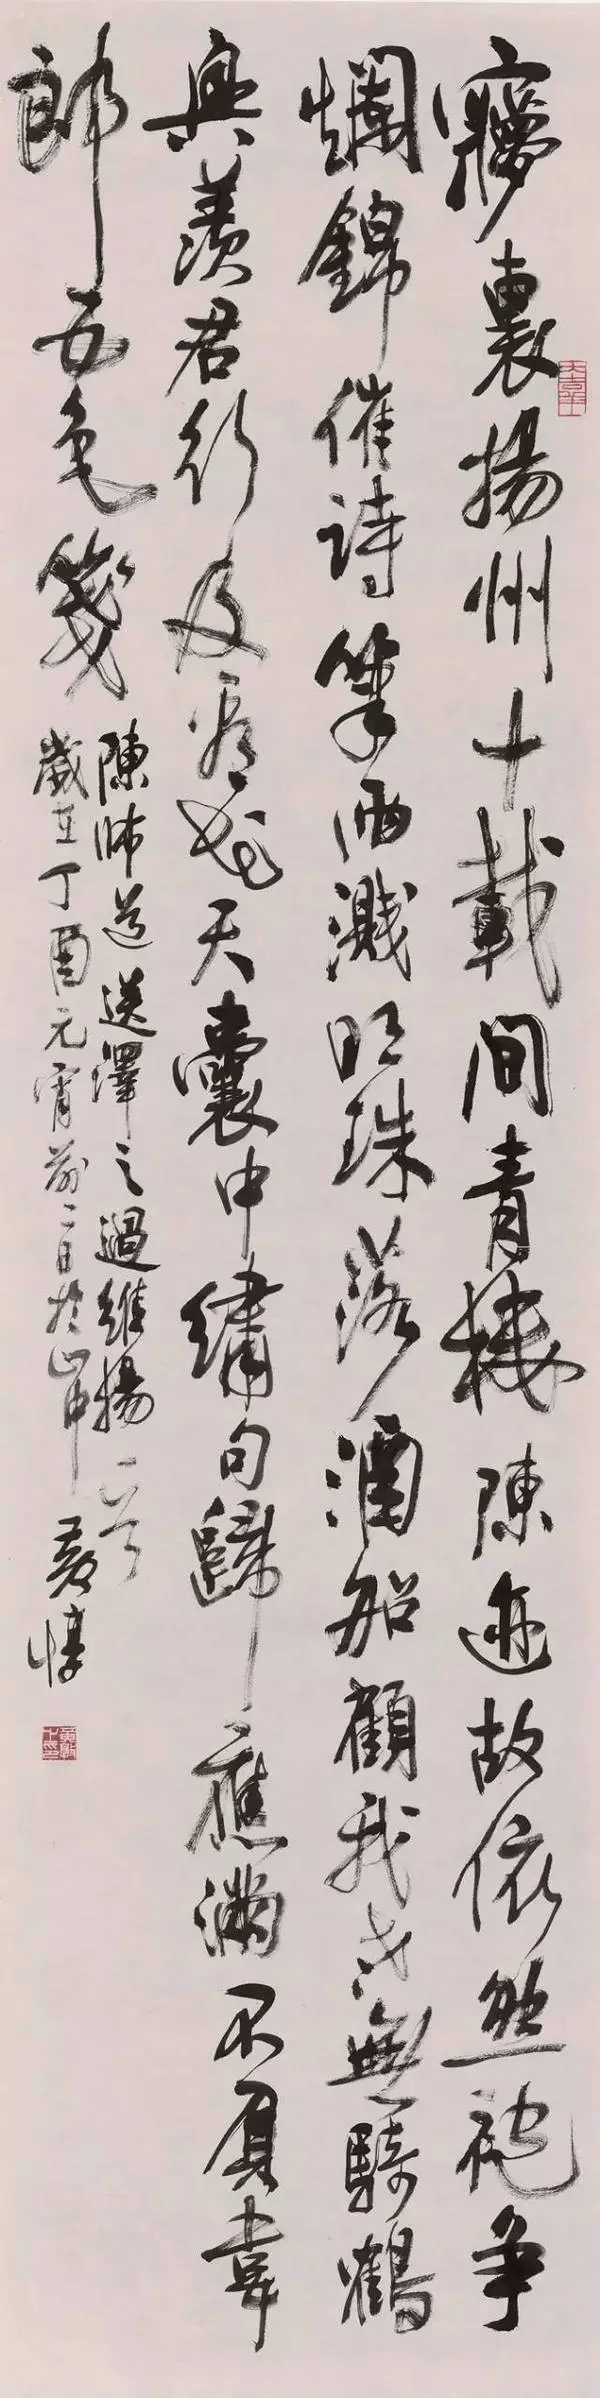 夢裏揚州十載間青樓陳迹故依然袍争
爛錦催詩筆雨濺明珠落酒船顧我老無騎鶴
興羨君行及看花天囊中繡句歸應滿不負韋
郎五色箋
陳師道送澤之過維揚一首
歲在丁酉元宵前二日於山中 黃惇